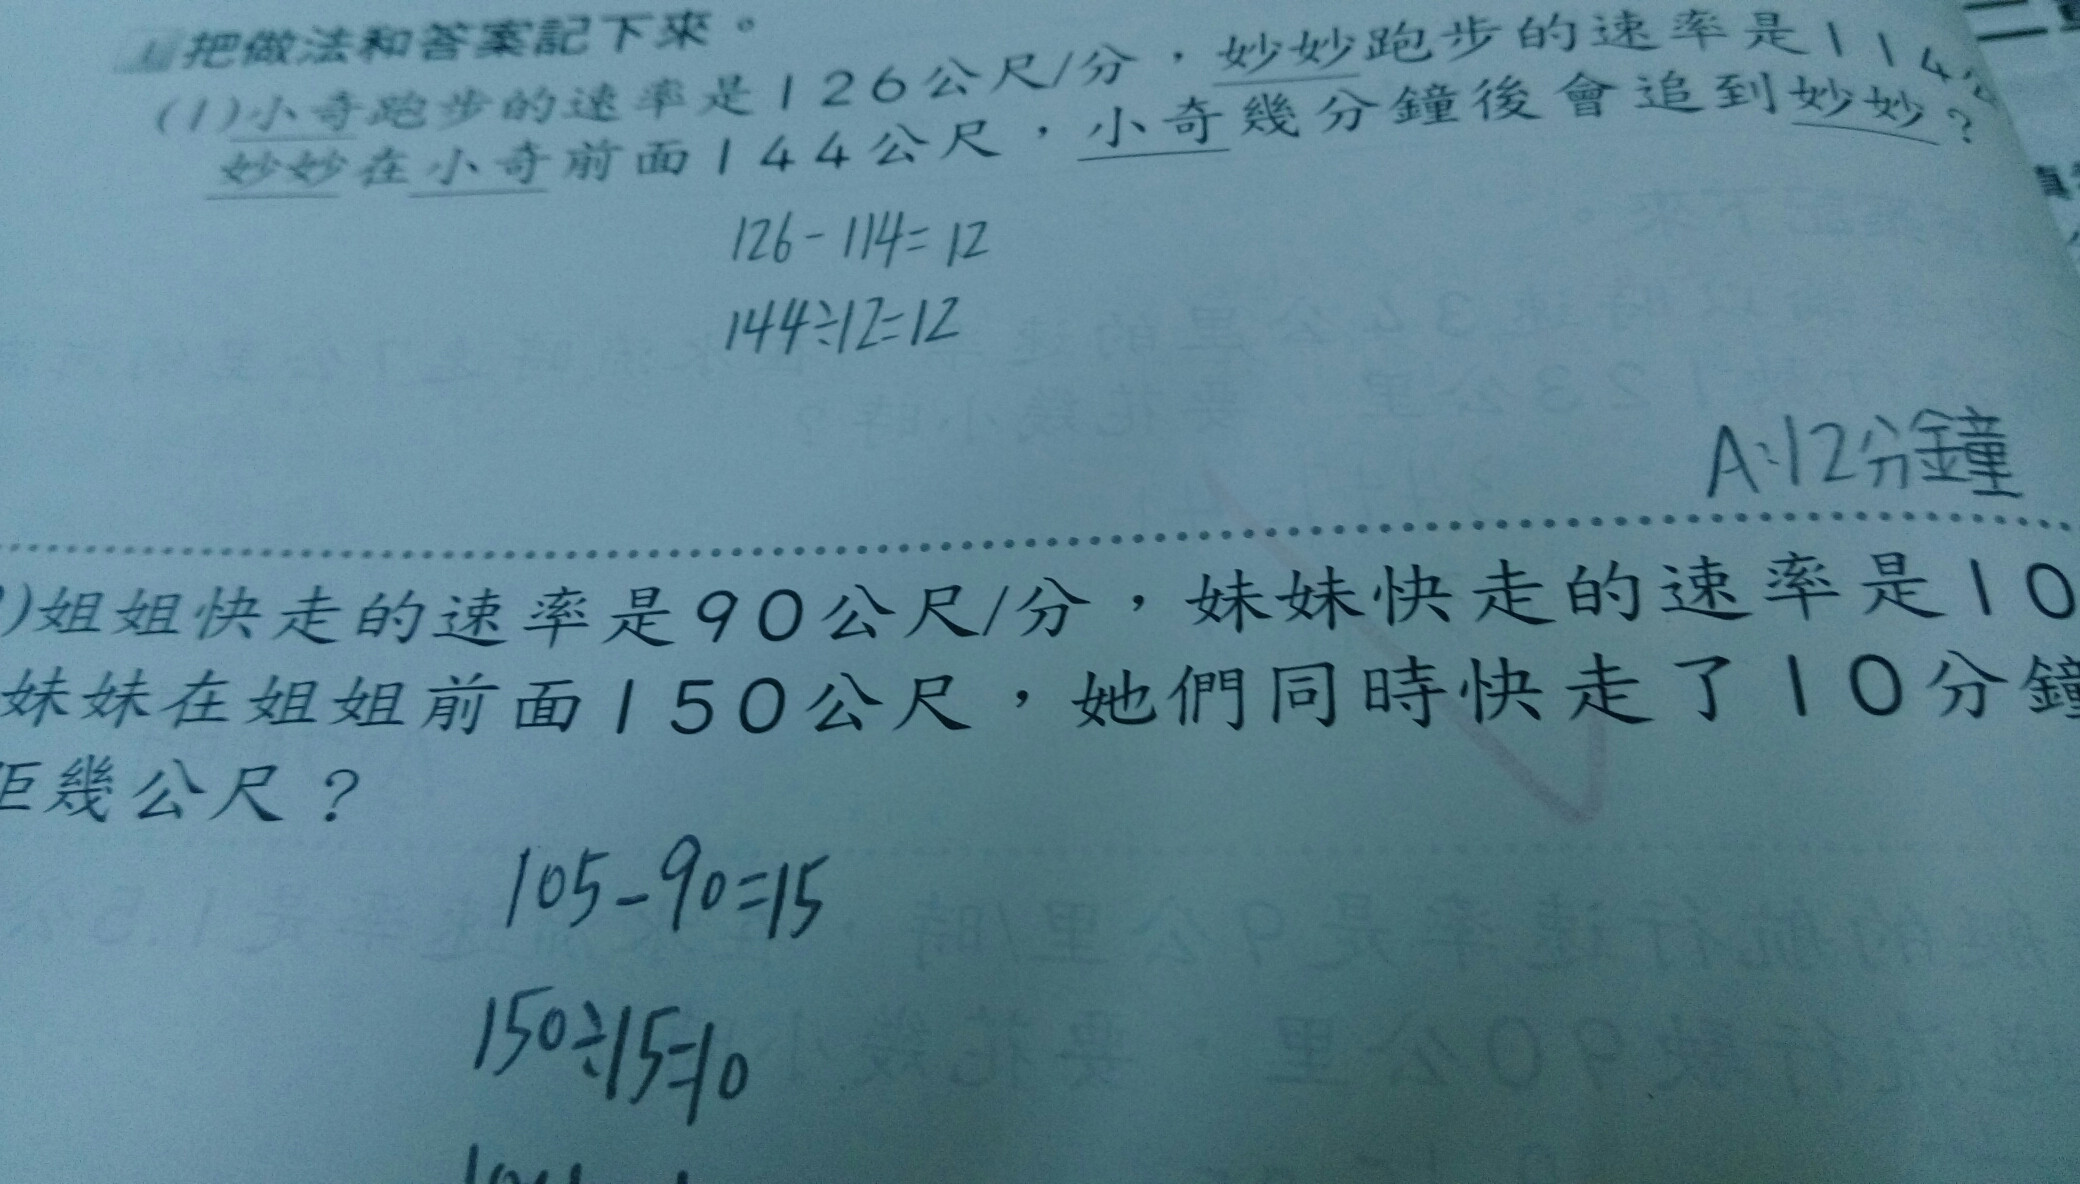 把做法和答案記下來。
(1)小奇跑步的速率是126公尺/分，妙妙跑步的速率是114
妙妙在小奇前面144公尺，小奇幾分鐘後會追到妙妙？
126-114=12
144÷12=12
A:12分鐘
)姐姐快走的速率是90公尺/分，妹妹快走的速率是10
妹妹在姐姐前面150公尺，她們同時快走了10分鐘
距幾公尺？
105-90=15
150÷15=10